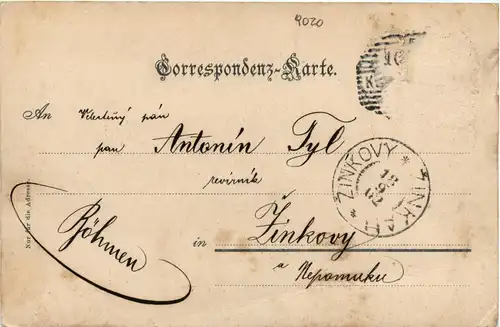 9020
Correspondenz-Karte.
An Velectěný pán
pan Antonín Tyl
revírník
in Žinkovy
u Nepomuku
Böhmen
Nur für die Adresse.
ŽINKOVY * ŽINKAU *
18
9
02
10
K